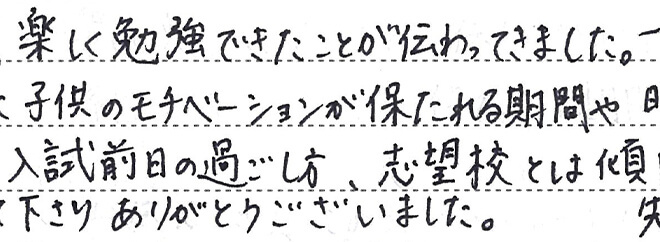 楽しく勉強できたことが伝わってきました。一
子供のモチベーションが保たれる期間や
入試前日の過ごし方、志望校とは傾
て下さり ありがとうございました。 失